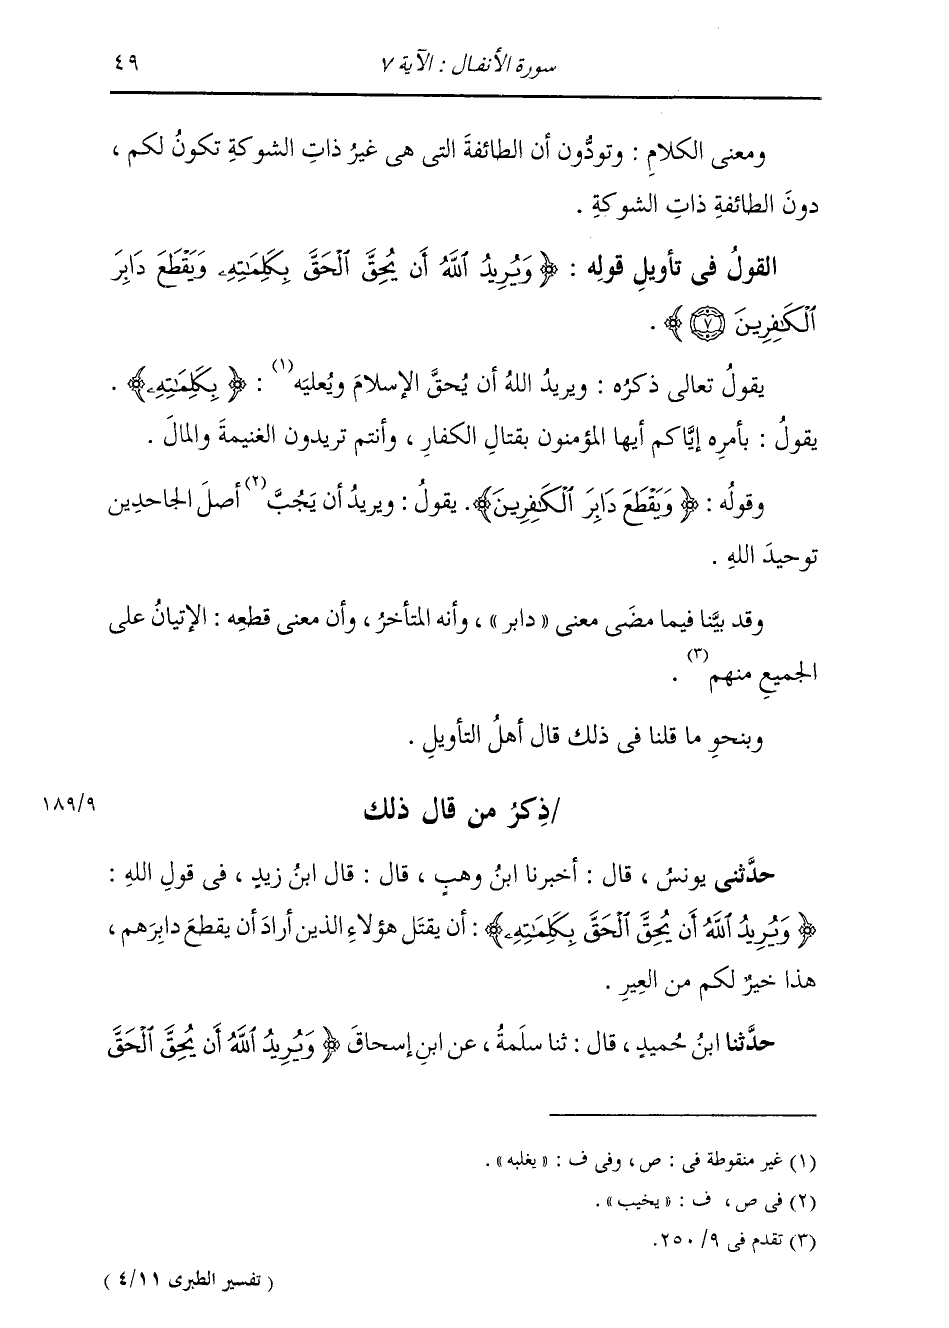 سورة الأنفال : الآية ٧
٤٩
ومعنى الكلامِ : وتودُّون أن الطائفةَ التى هى غيرُ ذاتِ الشوكةِ تكونُ لكم ،
دونَ الطائفةِ ذاتِ الشوكةِ .
القولُ فى تأويلِ قولِه : ﴿ وَيُرِيدُ ٱللَّهُ أَن يُحِقَّ ٱلْحَقَّ بِكَلِمَٰتِهِۦ وَيَقْطَعَ دَابِرَ
ٱلْكَٰفِرِينَ ﴿٧﴾ ﴾ .
يقولُ تعالى ذكرُه : ويريدُ اللهُ أن يُحقَّ الإسلامَ ويُعليَه (١) : ﴿ بِكَلِمَٰتِهِۦ ﴾ .
يقولُ : بأمرِه إيَّاكم أيها المؤمنون بقتالِ الكفارِ ، وأنتم تريدون الغنيمةَ والمالَ .
وقولُه : ﴿ وَيَقْطَعَ دَابِرَ ٱلْكَٰفِرِينَ ﴾. يقولُ : ويريدُ أن يَجُبَّ (٢) أصلَ الجاحدِين
توحيدَ اللهِ .
وقد بيَّنا فيما مضَى معنى «دابر» ، وأنه المتأخرُ ، وأن معنى قطعِه : الإتيانُ على
الجميعِ منهم (٣) .
وبنحوِ ما قلنا فى ذلك قال أهلُ التأويلِ .
/ذِكرُ من قال ذلك
١٨٩/٩
حدَّثنى يونسُ ، قال : أخبرنا ابنُ وهبٍ ، قال : قال ابنُ زيدٍ ، فى قولِ اللهِ :
﴿ وَيُرِيدُ ٱللَّهُ أَن يُحِقَّ ٱلْحَقَّ بِكَلِمَٰتِهِۦ ﴾ : أن يقتَل هؤلاءِ الذين أرادَ أن يقطعَ دابِرَهم ،
هذا خيرٌ لكم من العِيرِ .
حدَّثنا ابنُ حُميدٍ ، قال : ثنا سلَمةُ ، عن ابنِ إسحاقَ ﴿ وَيُرِيدُ ٱللَّهُ أَن يُحِقَّ ٱلْحَقَّ
(١) غير منقوطة فى : ص ، وفى ف : «يغلبه» .
(٢) فى ص ، ف : «يخيب» .
(٣) تقدم فى ٩/ ٢٥٠.
( تفسير الطبرى ٤/١١ )